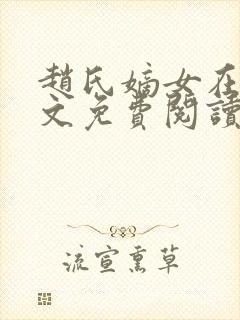 趙氏嫡女在
文免費閱讀
流宣熏草